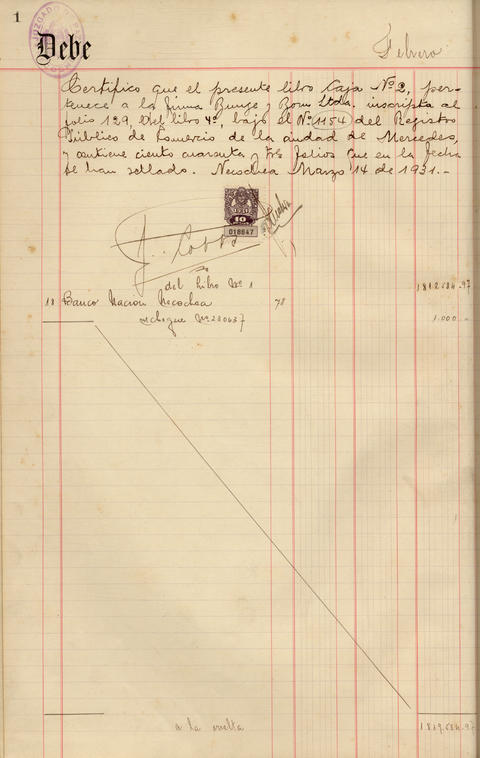 1
Debe
Febrero
Certifico que el presente libro Caja Nº2, per-
tenece a la firma Bunge y Born Ltda. inscripta al
folio 129, del libro 4º, bajo el Nº 1154 del Registro
Público de Comercio de la ciudad de Mercedes,
y contiene ciento cuarenta y tres folios que en la fecha
se han sellado. Necochea Marzo 14 de 1931.-
10
018647
del libro Nº 1
18 Banco Nacion Necochea 78
s/cheque Nº 230437 1.000.-
a la vuelta